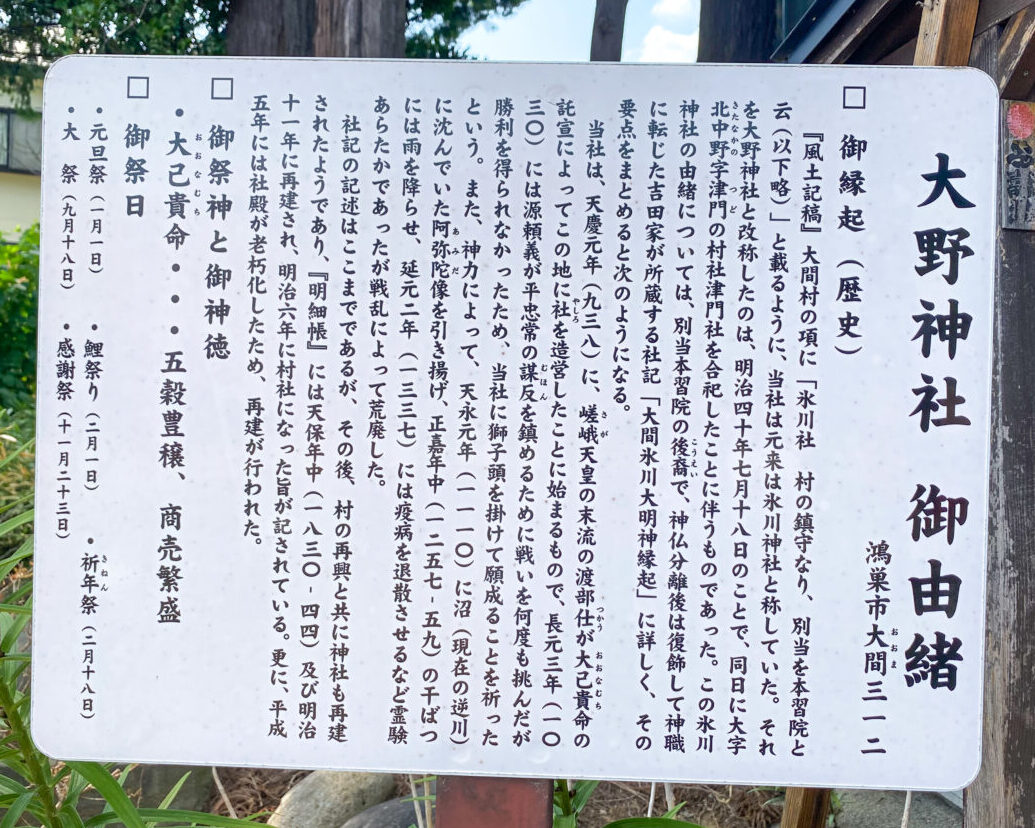 大野神社　御由緒
鴻巣市大間三一二
□　御縁起（歴史）
『風土記稿』大間村の項に「氷川社　村の鎮守なり、別当を本習院と
云（以下略）」と載るように、当社は元来は氷川神社と称していた。それ
を大野神社と改称したのは、明治四十年七月十八日のことで、同日に大字
北中野字津門の村社津門社を合祀したことに伴うものであった。この氷川
神社の由緒については、別当本習院の後裔で、神仏分離後は復飾して神職
に転じた吉田家が所蔵する社記「大間氷川大明神縁起」に詳しく、その
要点をまとめると次のようになる。
当社は、天慶元年（九三八）に、嵯峨天皇の末流の渡部仕が大己貴命の
託宣によってこの地に社を造営したことに始まるもので、長元三年（一〇
三〇）には源頼義が平忠常の謀反を鎮めるために戦いを何度も挑んだが
勝利を得られなかったため、当社に獅子頭を掛けて願成ることを祈った
という。また、神力によって、天永元年（一一一〇）に沼（現在の逆川）
に沈んでいた阿弥陀像を引き揚げ、正嘉年中（一二五七-五九）の干ばつ
には雨を降らせ、延元二年（一三三七）には疫病を退散させるなど霊験
あらたかであったが戦乱によって荒廃した。
社記の記述はここまでであるが、その後、村の再興と共に神社も再建
されたようであり、『明細帳』には天保年中（一八三〇-四四）及び明治
十一年に再建され、明治六年に村社になった旨が記されている。更に、平成
五年には社殿が老朽化したため、再建が行われた。
□　御祭神と御神徳
・大己貴命・・・五穀豊穣、商売繁盛
□　御祭日
・元旦祭（一月一日）　・鯉祭り（二月一日）　・祈年祭（二月十八日）
・大　祭（九月十八日）　・感謝祭（十一月二十三日）